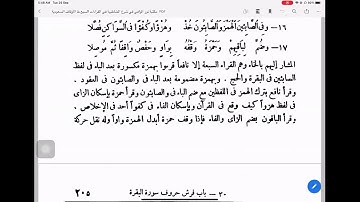 ١٦- وفى الصابئين الهمز والصابئون خذ وهزؤا وكفؤا فى السواكن فصلا
١٧- وضم لباقيهم وحمزة وقفه بواو وحفص واقفا ثم موصلا
المشار إليهم بالخاء وهم القراء السبعة إلا نافعا قرءوا بهمزة مكسورة بعد الباء فى لفظ
الصابئين فى البقرة والحج . وبهمزة مضمومة بعد الباء فى والصابئون فى المائدة
وقرأ نافع بترك الهمز فى اللفظين مع ضم الباء فى والصابئون وقرأ حمزة بإسكان الزاى
فى لفظ هزوا كيف وقع فى القرآن وبإسكان الفاء فى كفوا أحد فى الإخلاص .
وقرأ الباقون بضم الزاى والفاء فإذا وقف حمزة أبدل الهمزة واوا وله نقل حركة
٣ - باب فرش حروف سورة البقرة
٢٠٥